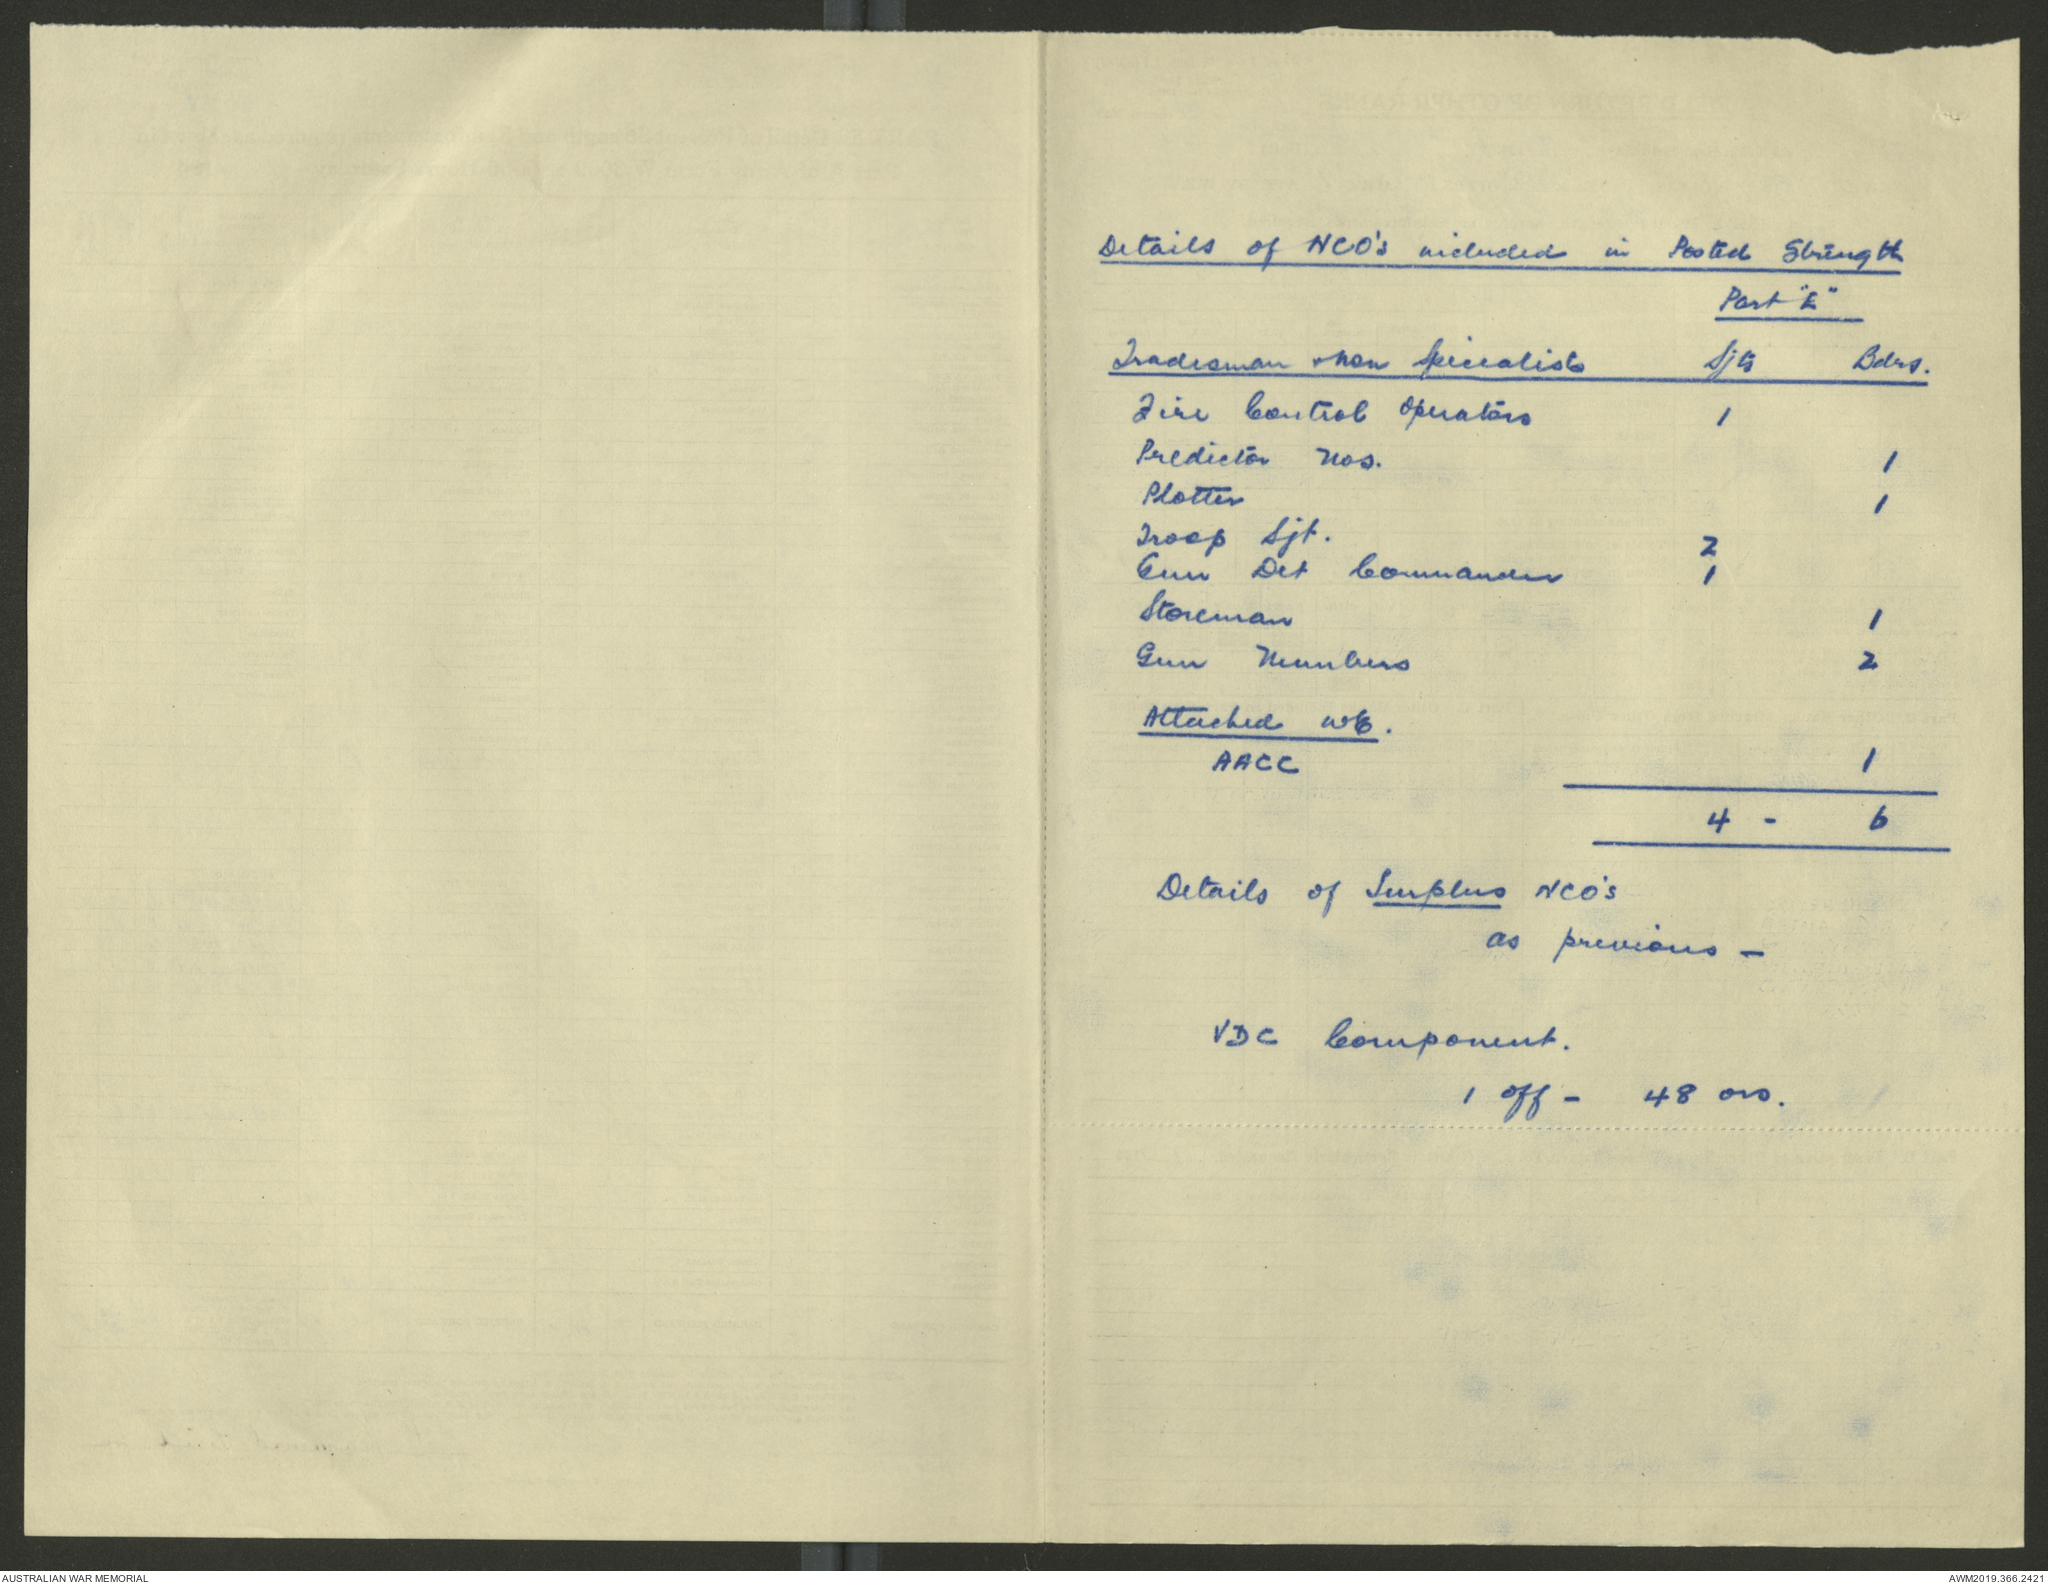 Details of NCO's included in Posted Strength
Part "E"
Tradesman & Non Specialists Sjts Bdrs.
Fire Control Operators 1
Predictor Nos. 1
Plotter 1
Troop Sjt. 2
Gun Det Commander 1
Storeman 1
Gun Numbers 2
Attached WE.
AACC 1
4 - 6
Details of Surplus NCO's
as previous -
VDC Component.
1 off - 48 ors.
AUSTRALIAN WAR MEMORIAL AWM2019.366.2421